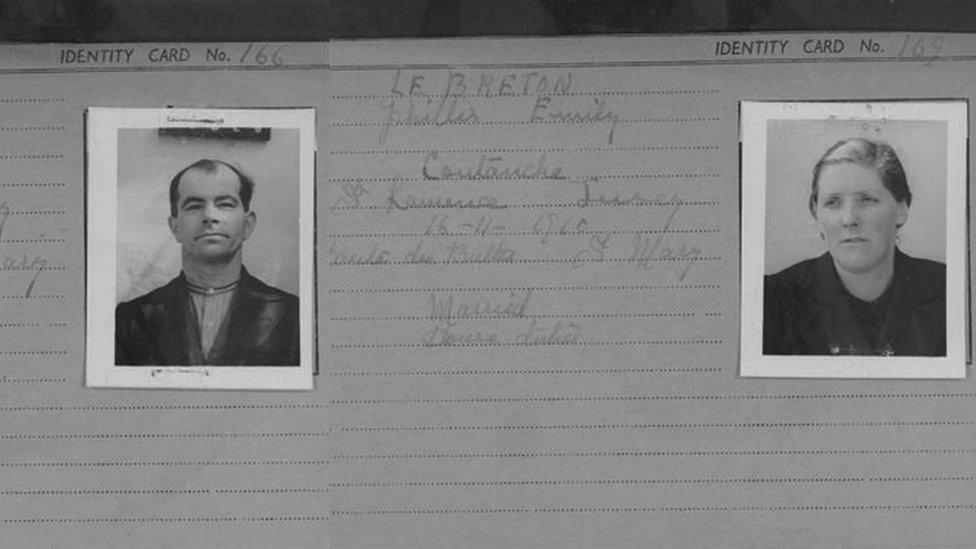 IDENTITY CARD No. 166
ary
IDENTITY CARD No. 169
LE BRETON
Phillis Emily
Coutanche
St Lawrence Jersey
16-11-1910
des Buttes St Mary
Married
House duties